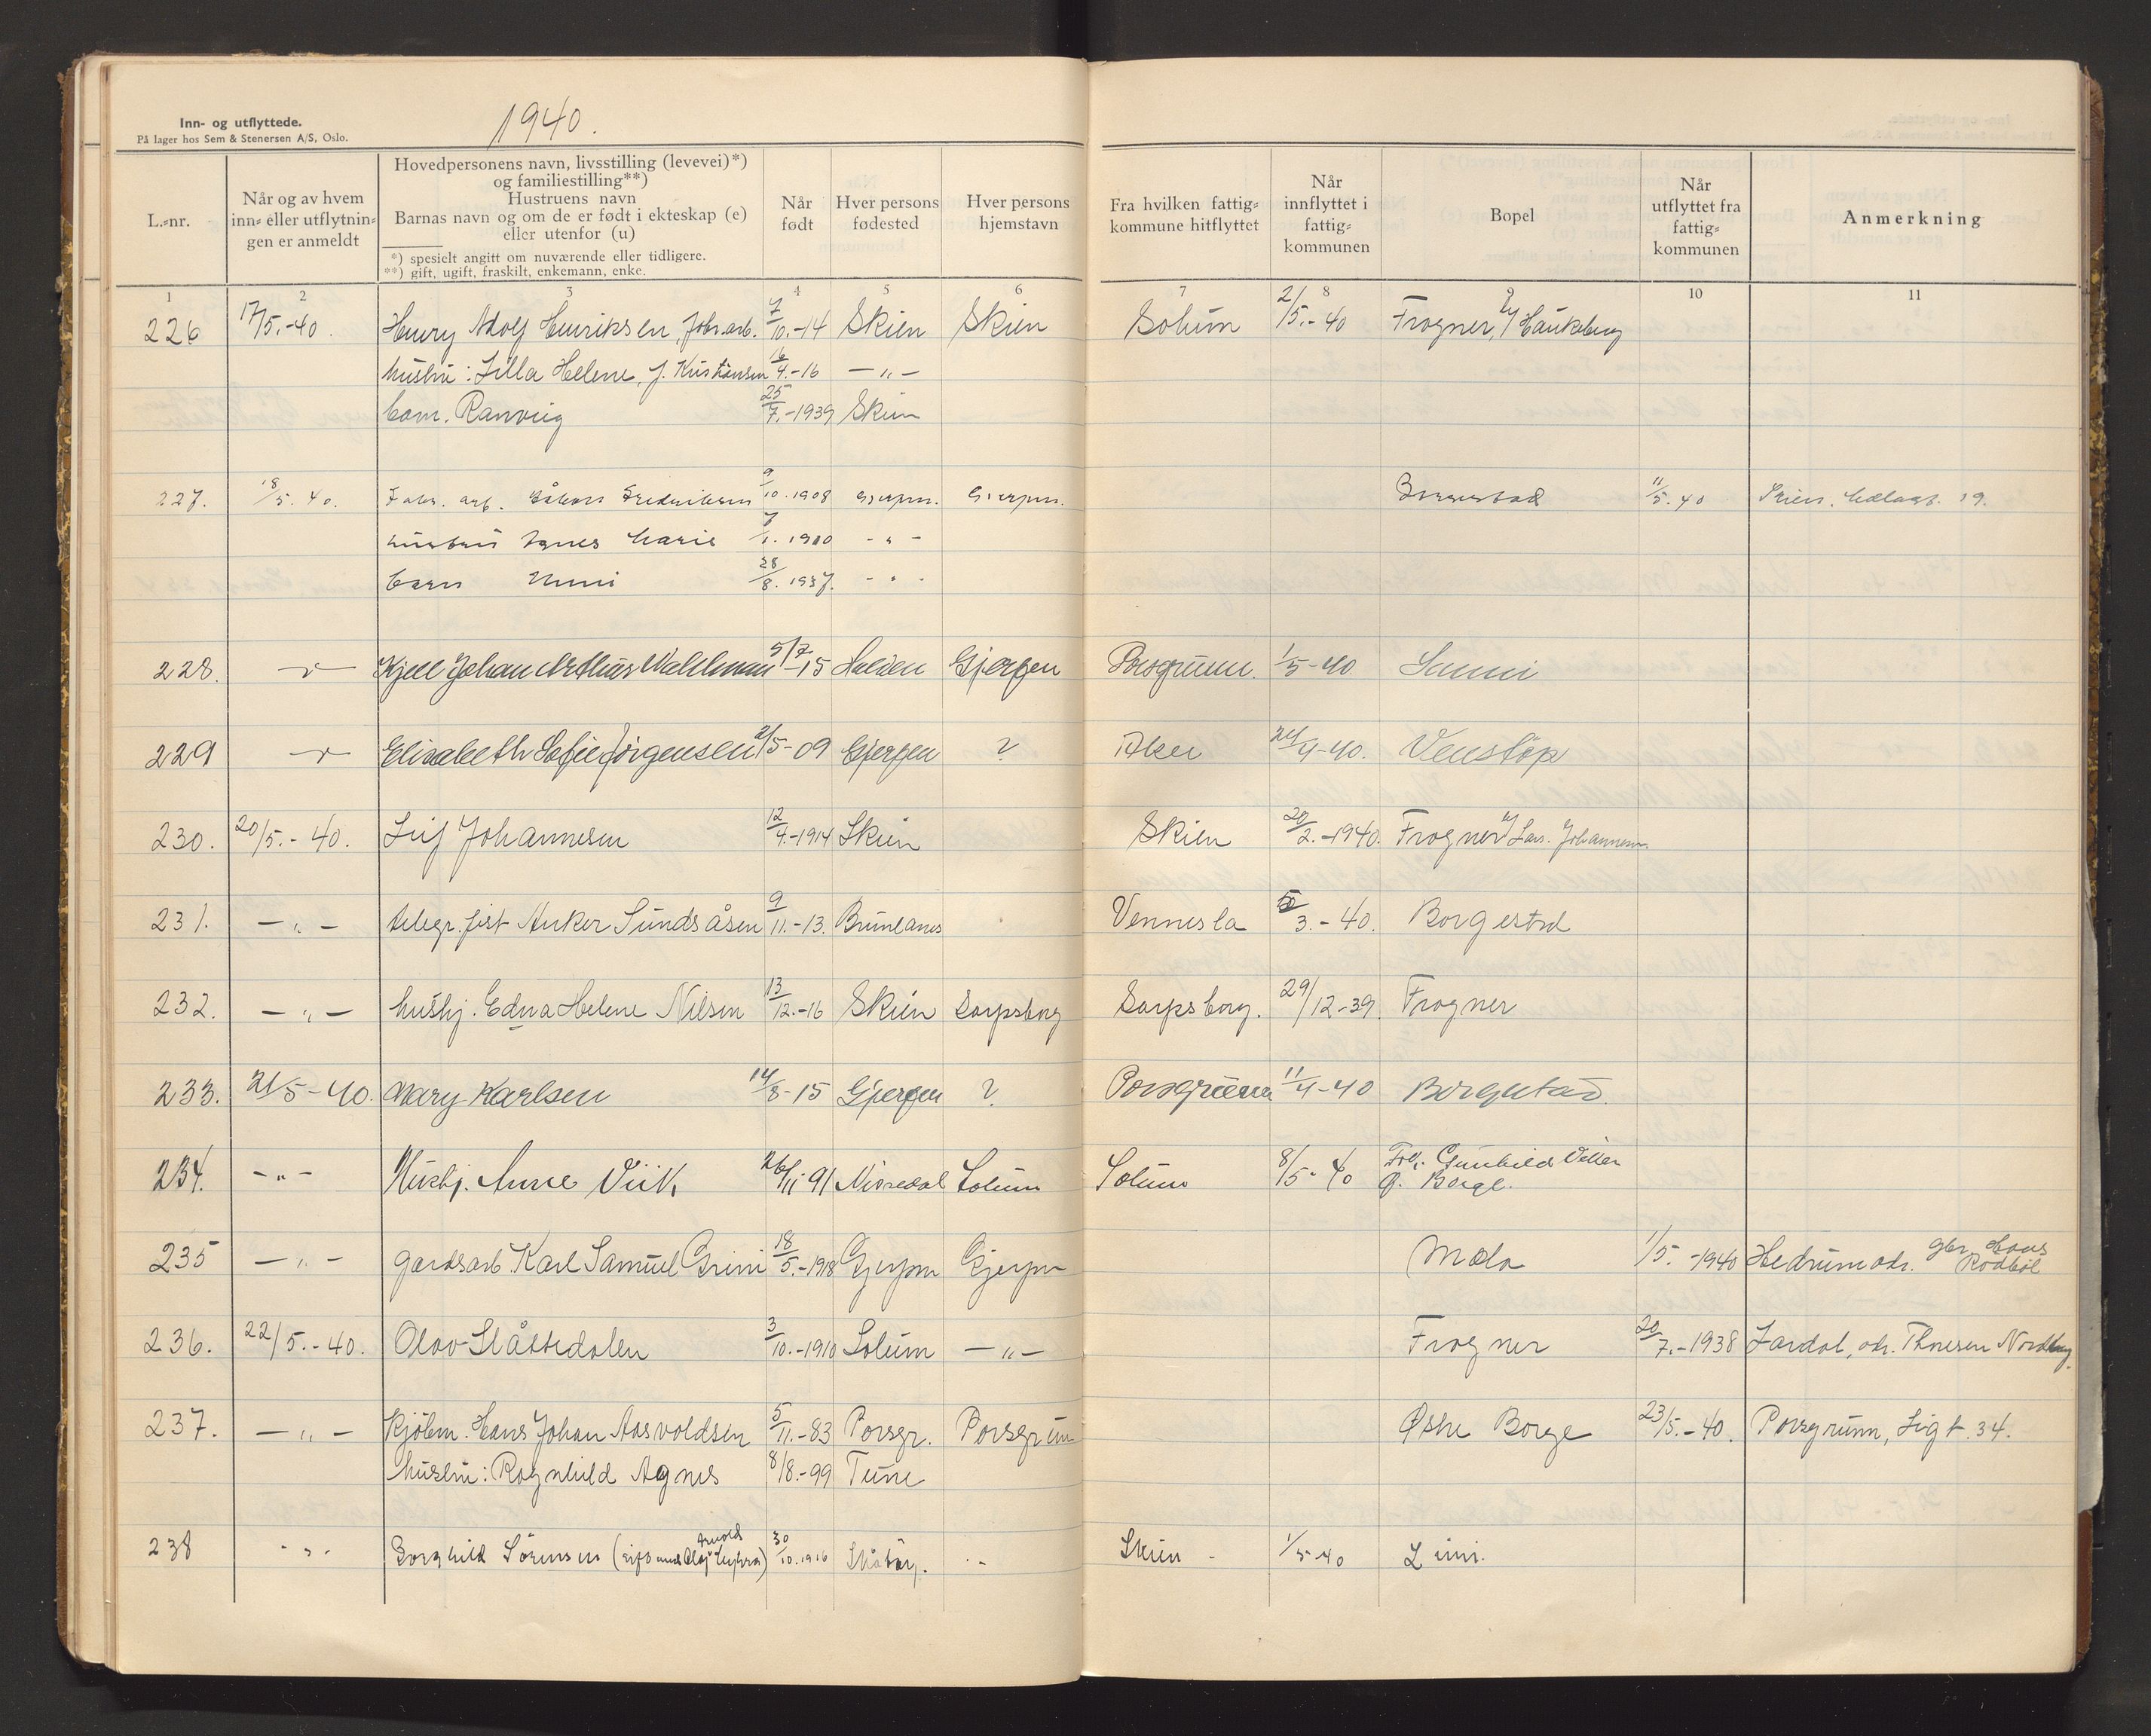 Inn- og utflyttede.
På lager hos Sem & Stenersen A/S, Oslo.
1940.
L.-nr.
Når og av hvem inn- eller utflytningen er anmeldt
Hovedpersonens navn, livsstilling (levevei)*)
og familiestilling**)
Hustruens navn
Barnas navn og om de er født i ekteskap (e)
eller utenfor (u)
*) spesielt angitt om nuværende eller tidligere.
**) gift, ugift, fraskilt, enkemann, enke.
Når født
Hver persons fødested
Hver persons hjemstavn
Fra hvilken fattig-kommune hitflyttet
Når innflyttet i fattig-kommunen
Bopel
Når utflyttet fra fattig-kommunen
Anmerkning
1 2 3 4 5 6 7 8 9 10 11
226 17/5.-40. Henry Adolf Henriksen, fabr.arb. 7/10.-14 Skien Skien Solum 2/5.-40 Frogner, Haukeberg
hustru: Lilla Helene, f. Kristiansen 16/4.-16 -„-
barn. Ranveig 25/7.-1939 Skien
227. 18/5. 40. Fabr. arb. Håkon Fredriksen 9/10.1908 Gjerpen. Gjerpen. Borgestad 11/5.40 Skien. 19.
hustru Agnes Marie 7/1.1910 -„-
barn Unni 28/8.1937. -„-
228. Kjell Johan Arthur Wahlman 5/7-15 Halden Gjerpen Porsgrunn. 1/5-40 Sanni
229 Elisabeth Sofie Jörgensen 2/5-09 Gjerpen ? Aker 24/4-40. Venstöp
230. 20/5.-40. Leif Johannesen 12/4.-1914 Skien Skien 20/2.-1940. Frogner Lars. Johannesen.
231. -„- telegr. Anker Sundsåsen 9/11.-13. Brunlanes Vennesla 3.-40. Borgestad
232. -„- hushj. Edna Helene Nilsen 13/12.-16 Skien Sarpsborg Sarpsborg. 29/12-39. Frogner
233. 21/5-40. Mary Karlsen 14/8-15 Gjerpen ? Porsgrunn 11/4-40 Borgestad.
234. -„- Hushj. Anne Viik 26/11 91 Nissedal Solum Solum 8/5-40 Gunhild
Borge.
235 -„- gardsarb. Karl Samuel Grini 18/5.-1918 Gjerpen Gjerpen Mæla 1/5.-1940 Hedrum adr. gbr. Hans Rødbøl
236. 22/5.-40. Olav Slåttedalen 3/10.-1910 Solum -„- Frogner 20/7.-1938 Lardal, adr. Thoresen Nordberg.
237. -„- Kjölem. Hans Johan Aasvoldsen 5/11.-83 Porsgr. Porsgrunn Østre Borge 23/5.-40. Porsgrunn, Ligt. 34.
hustru: Ragnhild Agnes 8/8.-99 Tune
238 -„- Borghild Sörensen (gift med Olaf Arnold) 30/10.1916 Skien 1/5-40 Limi.